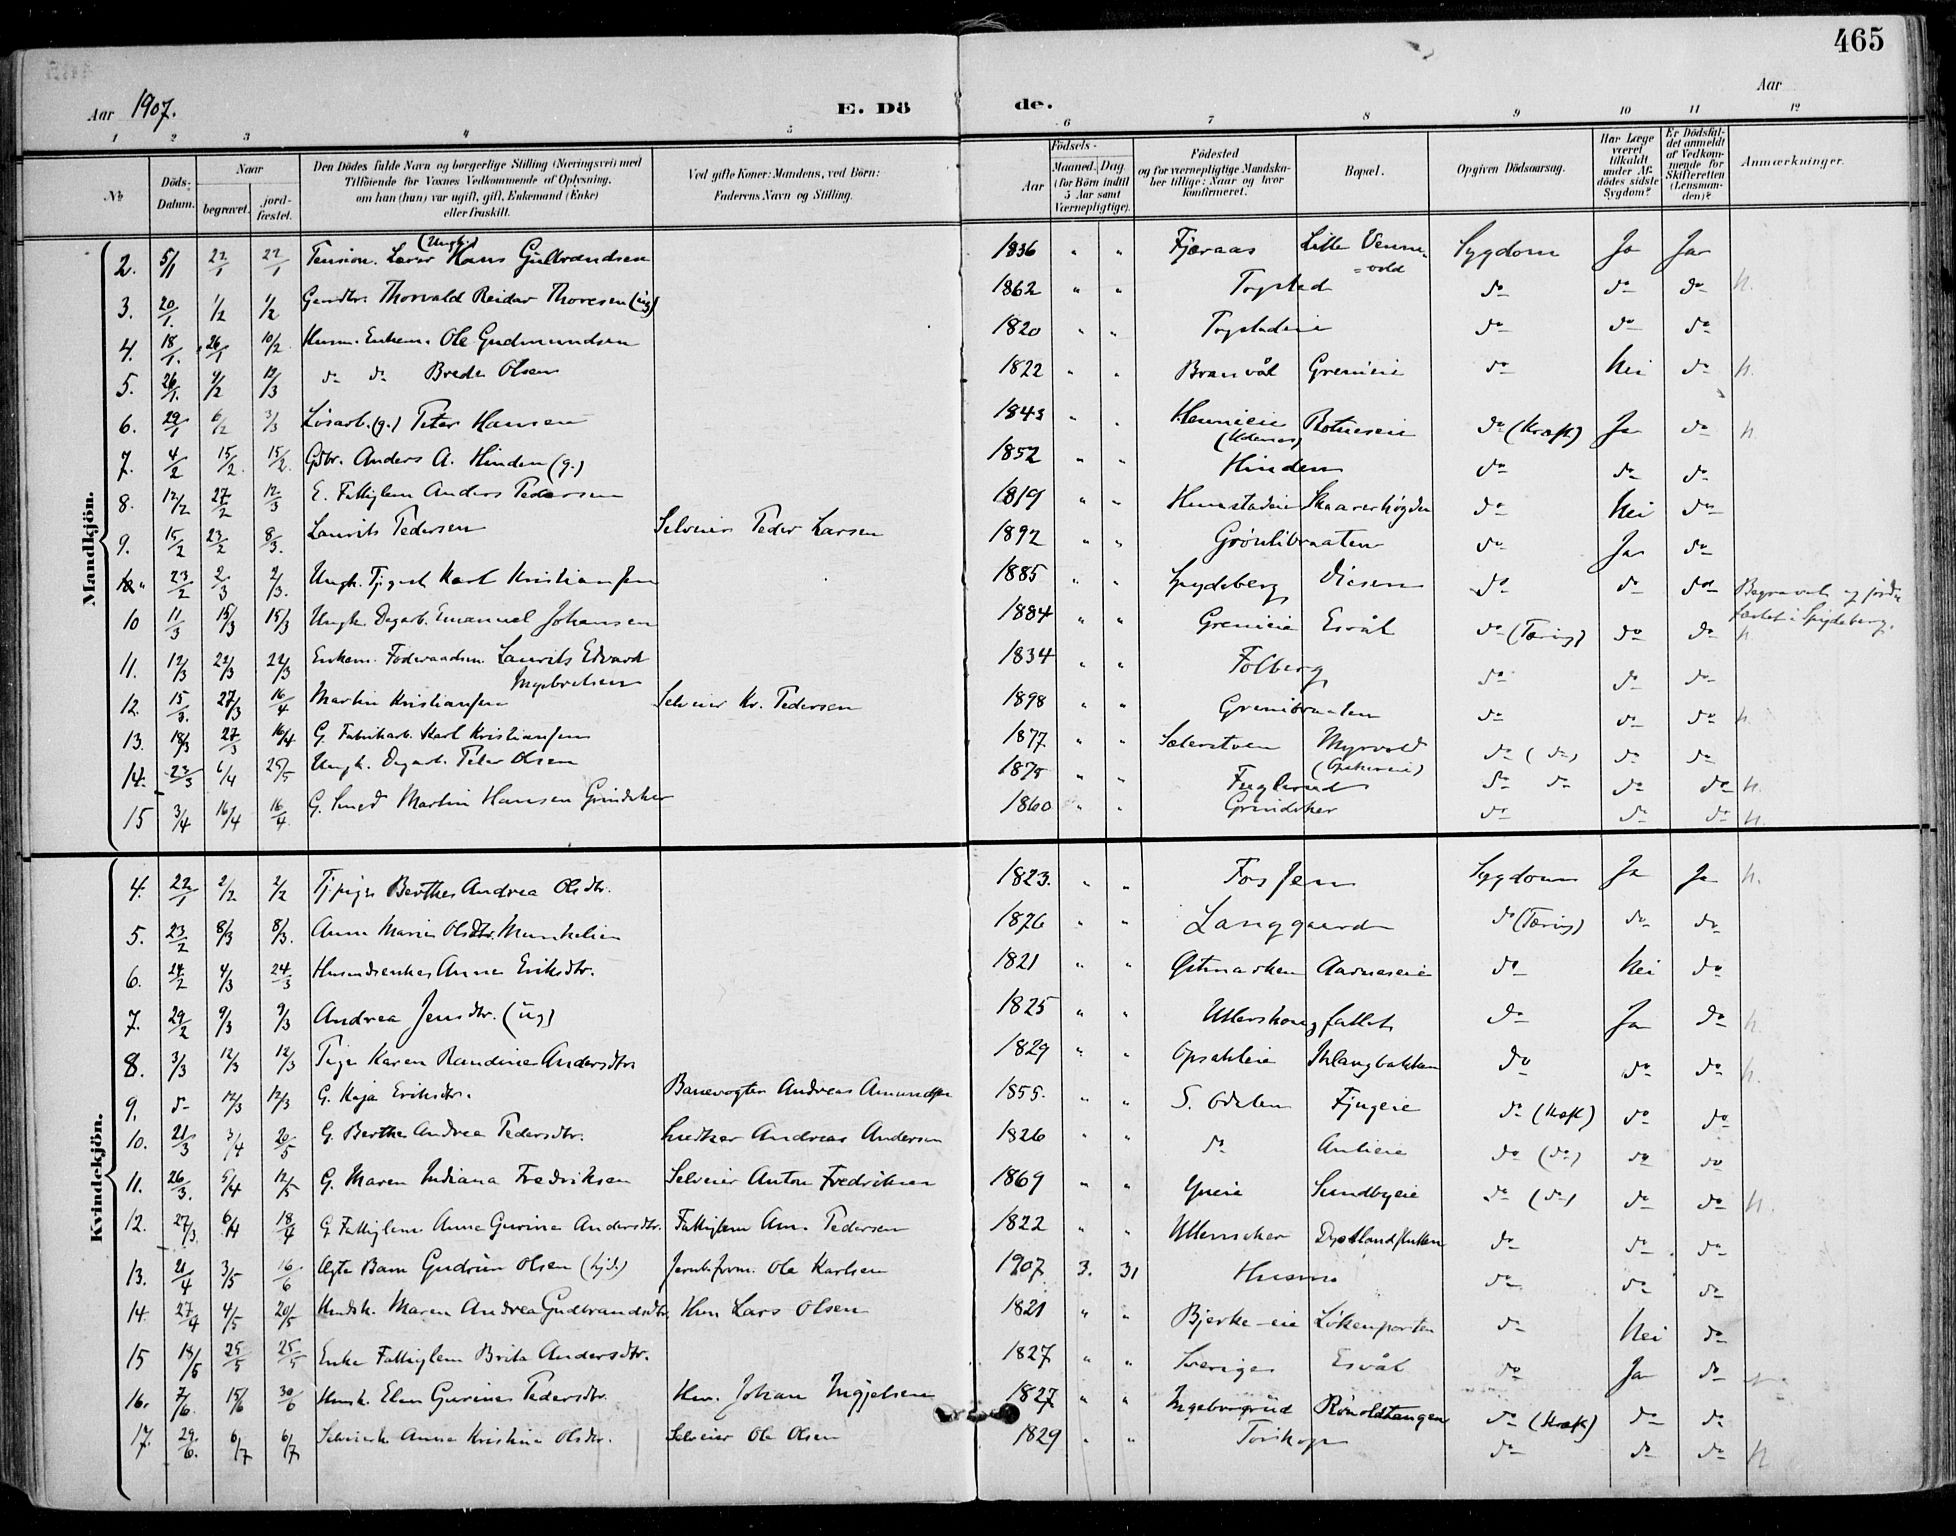 465
Aar 1907.
E. Dö
de.
Aar
1 2 3 4 5 6 7 8 9 10 11 12
No
Döds-Datum.
Naar
begravet.
jord-fæstet.
Den Dödes fulde Navn og borgerlige Stilling (Næringsvei) med
Tilföiende for Voxnes Vedkommende af Oplysning,
om han (hun) var ugift, gift, Enkemand (Enke)
eller fraskilt.
Ved gifte Koner: Mandens, ved Börn:
Faderens Navn og Stilling.
Födsels-
Aar
Maaned. Dag
(for Börn indtil
5 Aar samt
Værnepligtige).
Födested
og for værnepligtige Mandska-
ber tillige: Naar og hvor
konfirmeret.
Bopæl.
Opgiven Dödsaarsag.
Har Læge
været
tilkaldt
under Af-
dödes sidste
Sygdom?
Er Dödsfal-
det anmeldt
af Vedkom-
mende for
Skifteretten
(Lensman-
den)?
Anmærkninger.
Mandkjön.
2. 5/1 22/1 22/1 Pension. Lærer (Ungk.) Hans Gulbrandsen 1836 " " Fjæraas Lille Vennevold Sygdom Ja Ja
3. 20/1. 1/2 1/2 Gaardbr. Thorvald Reidar Thoresen (ug) 1862 " " Togstad do do do n.
4. 18/1. 26/1 10/2 Husm. Enkem. Ole Gudmundsen 1820 " " Togstadeie do do do
5. 26/1. 4/2 12/3 do do Brede Olsen 1822 " " Branvål Grenieie do Nei do n.
6. 29/1 6/2 3/3 Løsarb. (g.) Peter Hansen 1843 " " Rotneseie do (Kræft) Ja do n.
7. 4/2 15/2. 15/2. Gdbr. Anders A. Hinden (g.) 1852 " " Hinden do do do
8. 12/2 27/2 12/3 E. Fattiglem Anders Pedersen 1819 " " Skaarerhøgden do Nei do
9. 15/2 23/2 8/3. Laurits Pedersen Selveier Peder Larsen 1892 " " Grønlibraaten do Ja do
23/2 2/3 2/3. Ungk. Tjgut Karl Kristiansen 1885 " " Spydeberg do do do Begravet og jord-
fæstet i Spydeberg.
10 11/3 15/3 15/3 Ungk. Dagarb. Emanuel Johansen 1884 " " Grenieie Esvål do (Tæring) do do n
11. 12/3 22/3 22/3 Enkem. Føderaadsm. Laurits Edvard
Ingebretsen 1834 " " Folberg do do do
12. 15/3. 27/3 16/4 Martin Kristiansen Selveier Kr. Pedersen 1898 " " Grenibraaten do do do n.
13. 18/3 27/3 16/4 G. Fabrikarb. Karl Kristiansen 1877 " " Myrvold do (do) do do
14. 23/3 6/4 25/5 Ungk. Dagarb. Peter Olsen 1875 " " Fuglerud do do do do n.
15 3/4 16/4 16/4. G. Smed Martin Hansen Grindaker 1860 " " Grindaker do do do n.
Kvindekjön.
4. 22/1 2/2 2/2 Tjpige Berthe Andrea Olsdtr. 1823. " " Fossen Sygdom Ja Ja n.
5. 23/2 8/3 8/3. Anne Marie Olsdtr. Munkelien 1826 " " Langgaard do (Tæring) do do
6. 24/2 4/3 24/3 Husmdsenke Anne Eriksdtr. 1821 " " Østmarken Aarneseie do Nei do
7. 29/2 9/3 9/3 Andrea Jensdtr. (ug) 1825 " " do Ja do n.
8. 3/3 12/3 12/3 Pige Karen Randine Andersdtr. 1829 " " Opsahleie do do do n.
9. do 12/3 12/3 G. Kaja Eriksdtr. Banevogter Andreas Amundsen 1855. " " S. Odalen do (Kræft) do do
10. 21/3 3/4 20/5 G. Berthe Andrea Pedersdtr. Andreas Andersen 1826 " " do Anlieie do (do) do do
11. 26/3. 5/4 12/5 G. Maren Indiana Fredriksen Selveier Anton Fredriksen 1869 " " Sundbyeie do (do) do do n.
12. 27/3 6/4 18/4 G. Fattiglem Anne Gurine Andersdtr. Fattiglem Am. Pedersen 1822 " " Ullernsaker do do do
13. 21/4 3/5 16/6 Ægte Barn Gudrun Olsen Jernbform. Ole Karlsen 1907 3. 31 Husmo do do do
14. 27/4 4/5 20/5 Maren Andrea Gudbrandsdtr. Hm Lars Olsen 1821 " " Bjerke-eie Løkenporten do Nei do
15 18/5 25/5 25/5 Enke Fattiglem Brita Andersdtr. 1827 " " Sverige Esvål do Ja do
16. 7/6. 15/6 30/6 Hmsk. Elen Gurine Pedersdtr. Hm. Johan Ingjelsen 1827 " " Ingeborgrud Rönoldtangen do (Kræft) do do
17. 29/6. 6/7 6/7 Anne Kristine Olsdtr. Selveier Ole Olsen 1829 " " do do do n